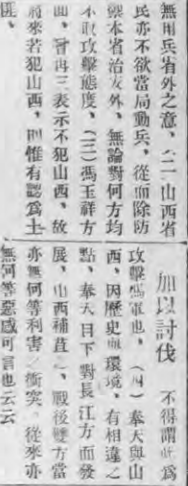 無用兵省外之意、（二）山西省
民亦不欲當局動兵、從而除防
禦本省治安外、無論對何方均
不取攻擊態度、（三）馮玉祥方
面、曾再三表示不犯山西、故
將來若犯山西、則惟有認爲土
匪、
加以討伐　不得謂此爲
攻擊馮軍也、（四）奉天與山
西、因歷史與環境、有相違之
點、奉天目下對長江方面發
展、山西補苴、戰後雙方當
亦無何等利害衝突、從來亦
無何等惡感可言也云云